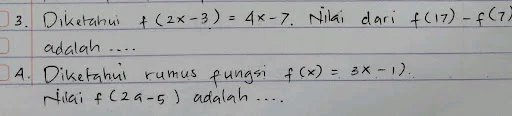 3. Diketahui f(2x-3) = 4x-7. Nilai dari f(17) - f(7)
adalah ....
4. Diketahui rumus fungsi f(x) = 3x-1).
Nilai f(2a-5) adalah ....